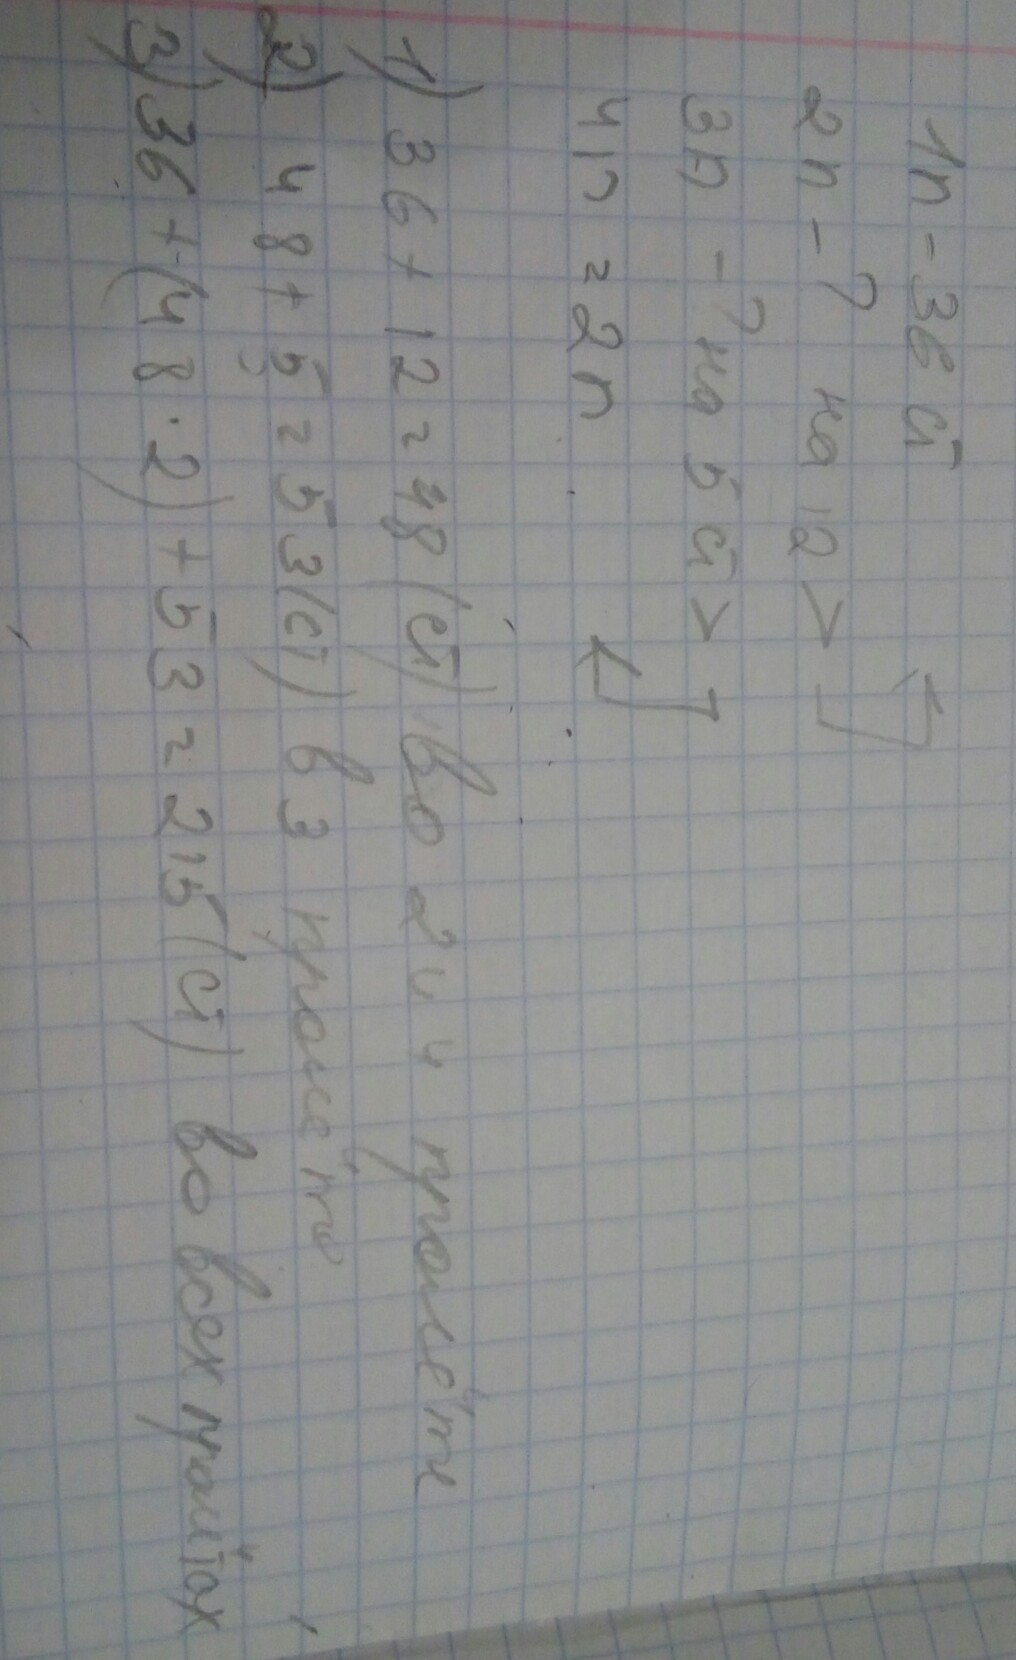 1п - 36 ст
2п - ? на 12 >
3п - ? на 5 ст >
4п = 2п
1) 36 + 12 = 48 (ст) во 2 и 4 пролёте
2) 48 + 5 = 53 (ст) в 3 пролёте
3) 36 + (48 · 2) + 53 = 215 (ст) во всех